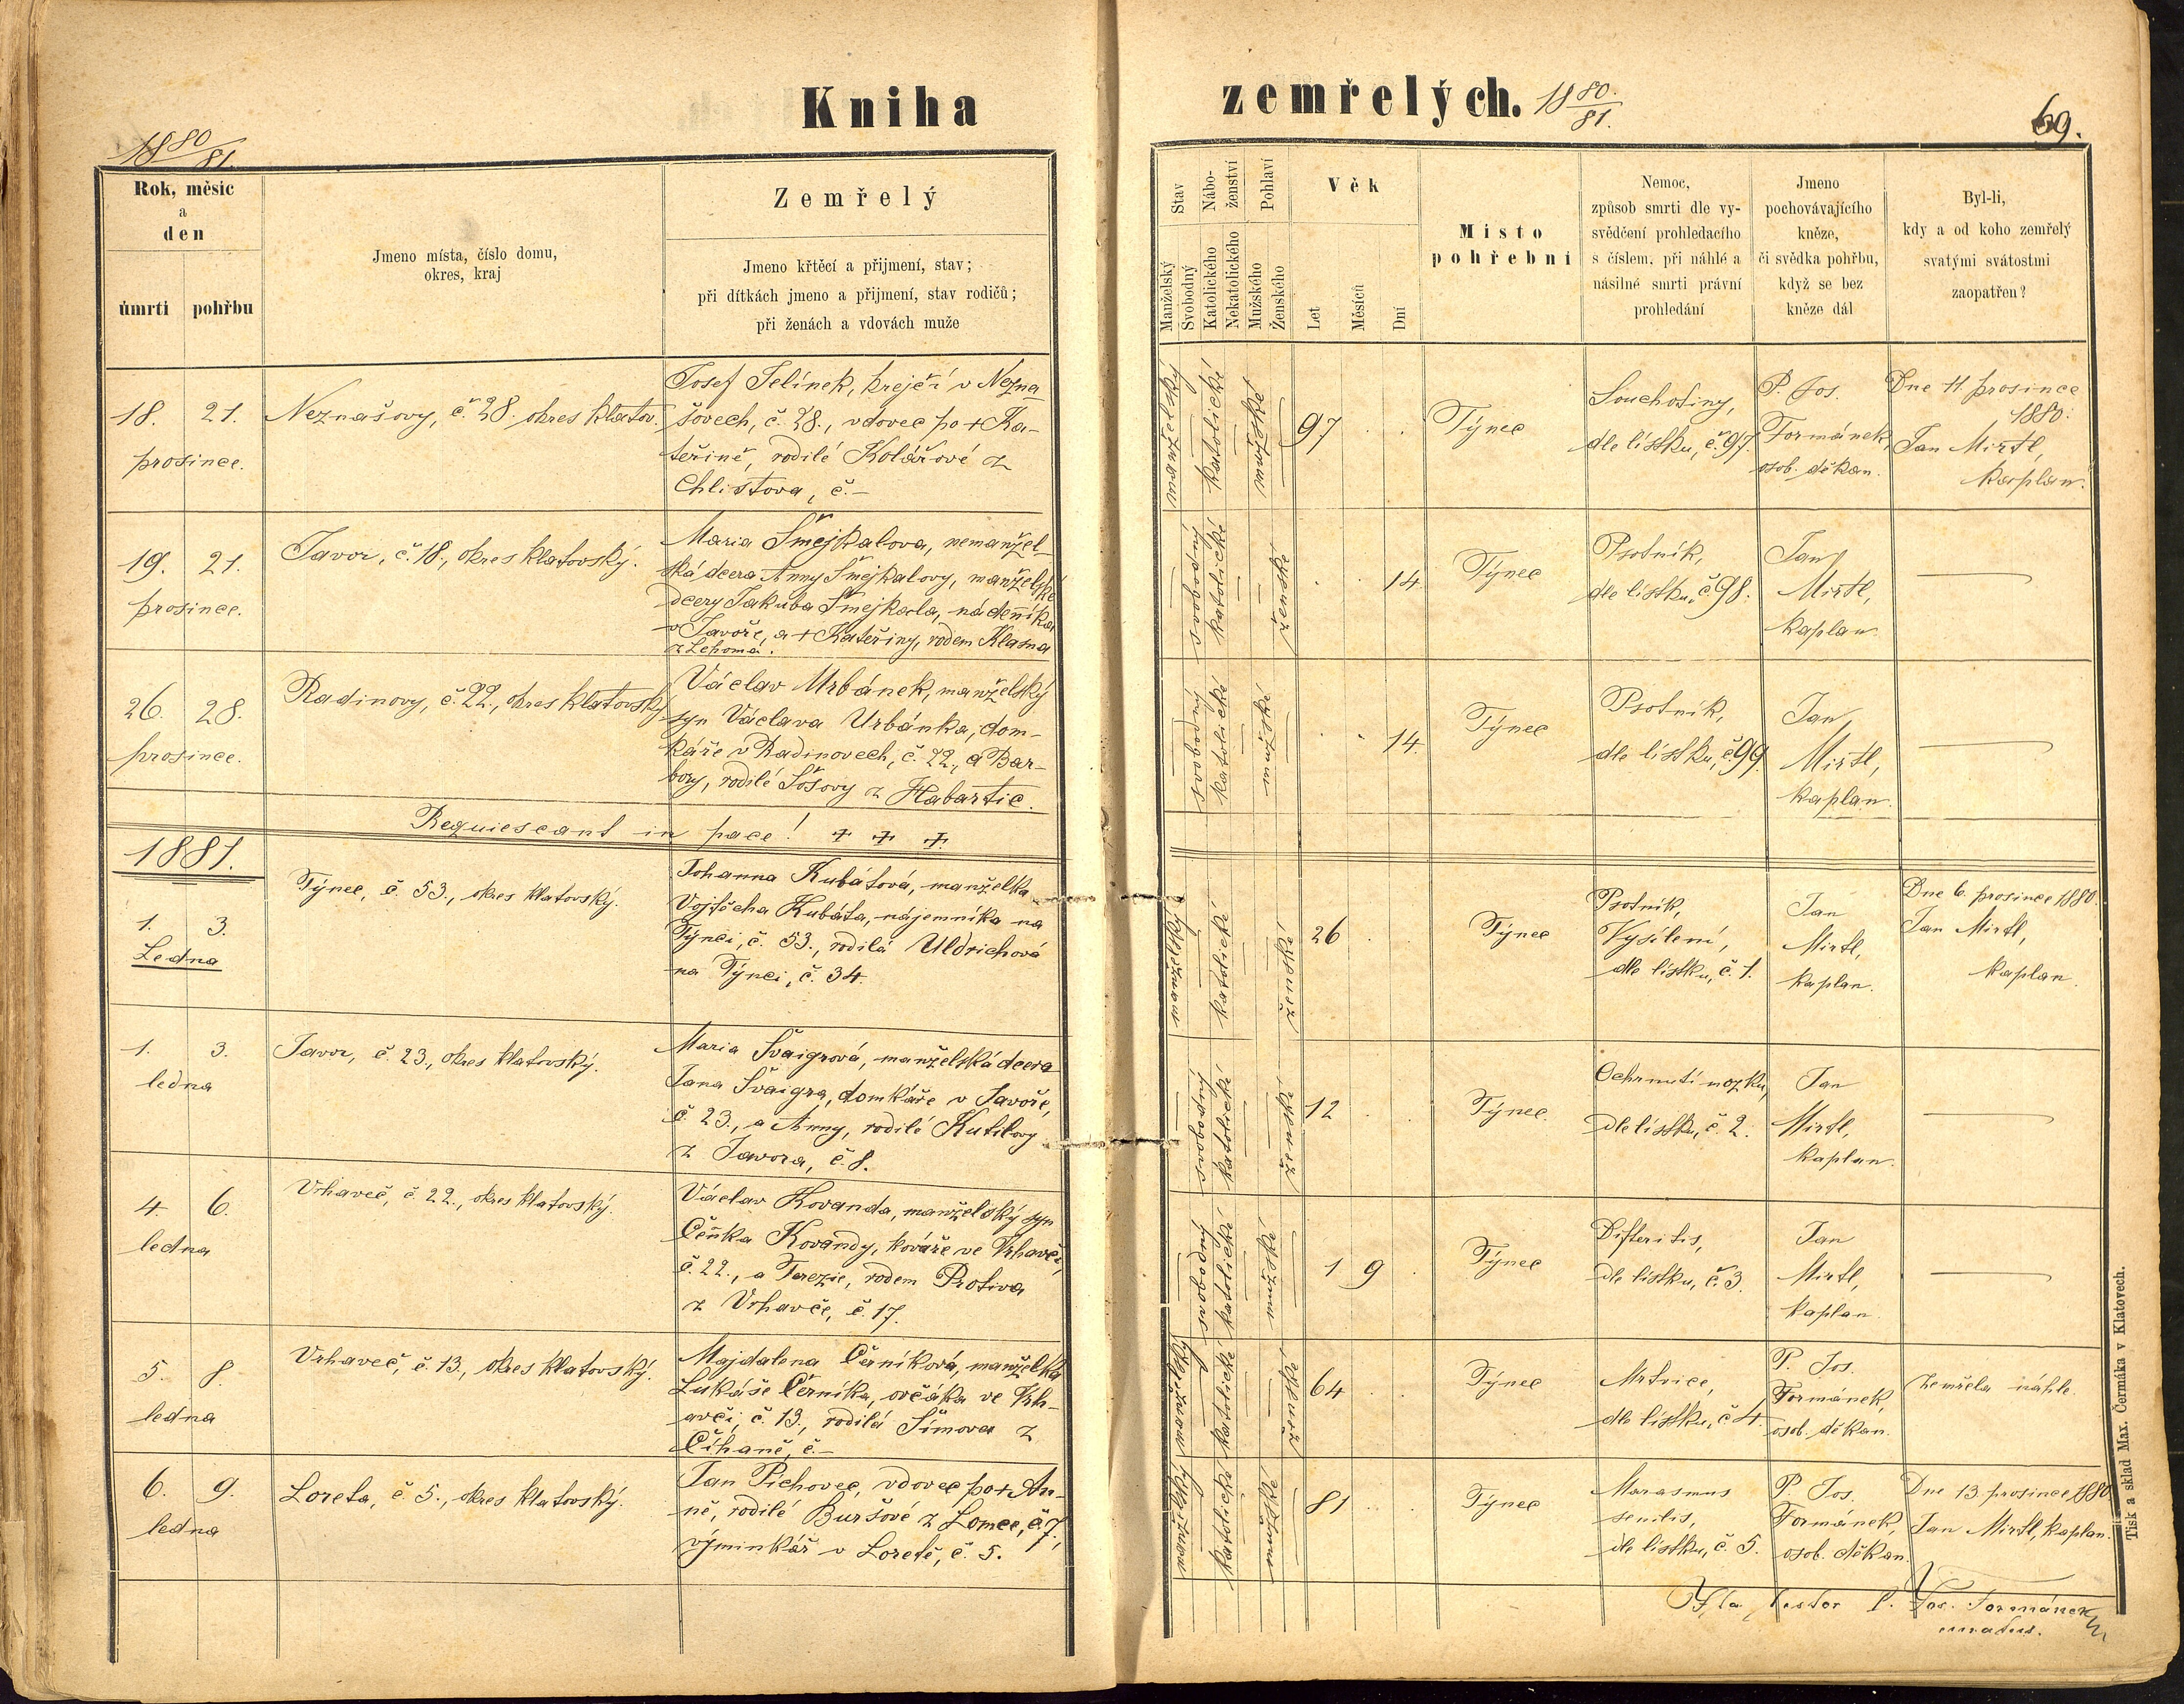 Kniha
zemřelých. 1880/81.
1880/81
69.
Rok, měsíc
a
den
úmrtí
pohřbu
Jmeno místa, číslo domu,
okres, kraj
Zemřelý
Jmeno křtěcí a přijmení, stav;
při dítkách jmeno a přijmení, stav rodičů;
při ženách a vdovách muže
Stav
Manželský
Svobodný
Nábo-
ženství
Katolického
Nekatolického
Pohlaví
Mužského
Ženského
Věk
Let
Měsíců
Dní
Místo
pohřební
Nemoc,
způsob smrti dle vy-
svědčení prohledacího
s číslem, při náhlé a
násilné smrti právní
prohledání
Jmeno
pochovávajícího
kněze,
či svědka pohřbu,
když se bez
kněze dál
Byl-li,
kdy a od koho zemřelý
svatými svátostmi
zaopatřen?
18. 21.
prosince.
Neznašovy, č. 28. okres klatov.
Josef Jelínek, krejčí v Nezna
šovech, č. 28., vdovec po + Ka-
teřině, rodilé Kolářové z
Chlistova, č. –
manželský
katolické
mužské
97
Týnec
Souchotiny,
dle lístku, č. 97.
P. Jos.
Formánek,
osob. děkan.
Dne 11. prosince
1880.
Jan Mirtl,
kaplan.
19. 21.
prosince.
Javor, č. 18., okres klatovský.
Maria Šmejkalova, nemanžel-
ská dcera Anny Šmejkalovy, manželské
dcery Jakuba Šmejkala, nádenníka
v Javoře, a + Kateřiny, rodem Klasna
svobodný
katolické
ženské
14.
Týnec
Psotník,
dle lístku, č. 98.
Jan
Mirtl,
kaplan.
26. 28.
prosince.
Radinovy, č. 22., okres klatovský
Václav Urbánek, manželský
syn Václava Urbánka, dom-
káře v Radinovech, č. 22., a Bar-
bory, rodilé Šosovy z Habartic.
svobodný
katolické
mužské
14.
Týnec
Psotník,
dle lístku, č. 99.
Jan
Mirtl,
kaplan.
Requiescant in pace! + + +
1881.
1. 3.
Ledna
Týnec, č. 53., okres klatovský.
Johanna Kubátová, manželka
Vojtěcha Kubáta, nájemníka na
Týnci, č. 53., rodilá Uldrichová
na Týnci, č. 34.
manželský
katolické
ženské
26
Týnec
Psotník,
Vysílení,
dle lístku, č. 1.
Jan
Mirtl,
kaplan.
Dne 6. prosince 1880.
Jan Mirtl,
kaplan.
1. 3.
ledna
Javor, č. 23., okres klatovský.
Maria Švaigrová, manželská dcera
Jana Švaigra, domkáře v Javoře,
č. 23., a Anny, rodilé Kutilovy
z Javora, č. 8.
svobodný
katolické
ženské
12
Týnec
Ochrnutí mozku,
dle lístku, č. 2.
Jan
Mirtl,
kaplan.
4. 6.
ledna
Vrhaveč, č. 22., okres klatovský.
Václav Kovanda, manželský syn
Čeňka Kovandy, kováře ve Vrhavči,
č. 22., a Terezie, rodem Protiva
z Vrhavče, č. 17.
svobodný
katolické
mužské
1 9
Týnec
Difteritis,
dle lístku, č. 3.
Jan
Mirtl,
kaplan.
5. 8.
ledna
Vrhaveč, č. 13., okres klatovský.
Majdalena Černíková, manželka
Lukáše Černíka, ovčáka ve Vrh-
avči, č. 13., rodilá Šímova z
Číhaně, č. –
manželský
katolické
ženské
64
Týnec
Mrtvice,
dle lístku, č. 4.
P. Jos.
Formánek,
osob. děkan.
Zemřela náhle.
6. 9.
ledna
Loreta, č. 5., okres klatovský.
Jan Pichovec, vdovec po + An-
ně, rodilé Buršové z Lomce, č. 7,
výminkář v Loretě, č. 5.
manželský
katolické
mužské
81
Týnec
Marasmus
senilis,
dle lístku, č. 5.
P. Jos.
Formánek,
osob. děkan.
Dne 13. prosince 1880
Jan Mirtl, kaplan.
Ita testor P. Jos. Formánek
Tisk a sklad Max. Čermáka v Klatovech.